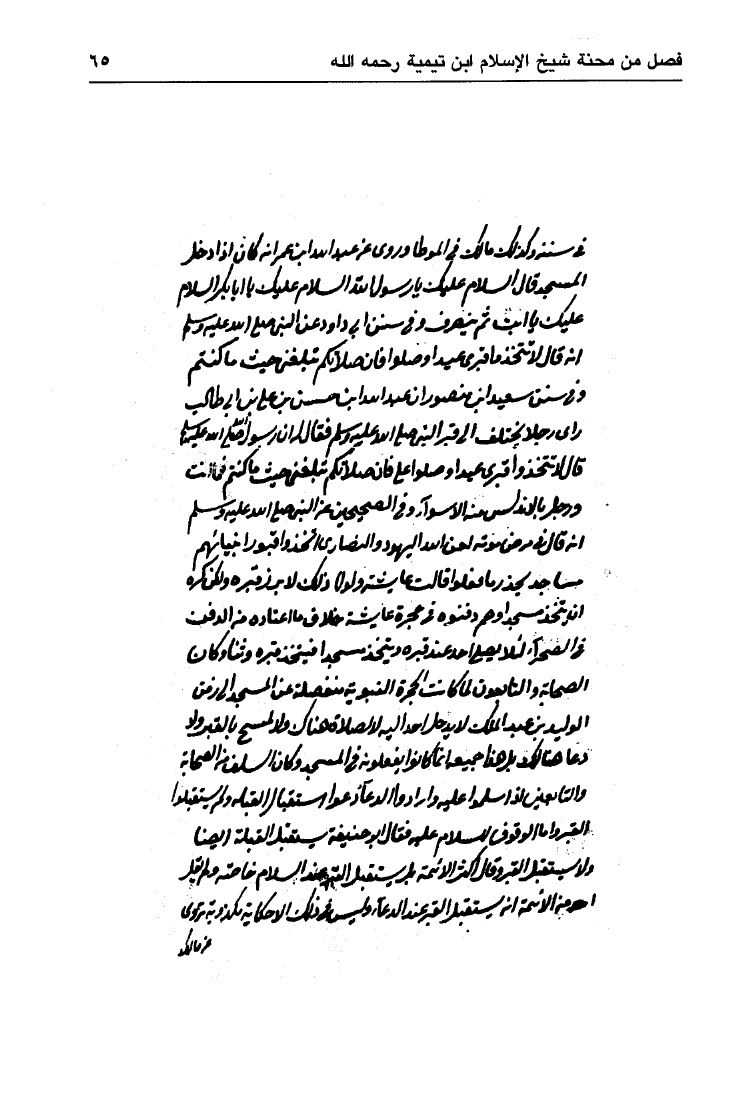 فصل من محنة شيخ الإسلام ابن تيمية رحمه الله ٦٥
في سننه وكذلك مالك في الموطا وروى عن عبد الله ابن عمر انه كان اذا دخل
المسجد قال السلام عليك يا رسول الله السلام عليك يا ابا بكر السلام
عليك يا ابت ثم ينصرف وفي سنن ابي داود عن النبي صلى الله عليه وسلم
انه قال لا تتخذوا قبري عيدا وصلوا فان صلاتكم تبلغني حيث ما كنتم
وفي سنن سعيد ابن منصور ان عبد الله ابن حسن بن علي بن ابي طالب
راى رجلا يختلف الى قبر النبي صلى الله عليه وسلم فقال له ان رسول الله صلى الله عليه وسلم
قال لا تتخذوا قبري عيدا وصلوا علي فان صلاتكم تبلغني حيث ما كنتم فما انت
ورجل بالاندلس منه الا سوآء وفي الصحيحين عن النبي صلى الله عليه وسلم
انه قال في مرض موته لعن الله اليهود والنصارى اتخذوا قبور انبيائهم
مساجد يحذر ما فعلوا قالت عايشة ولولا ذلك لابرز قبره ولكن كره
ان يتخذ مسجدا وهم دفنوه في حجرة عايشة خلاف ما اعتاده من الدفن
في الصحرآء لئلا يصلي احد عند قبره ويتخذ مسجدا فيتخذ قبره وثنا وكان
الصحابة والتابعون لما كانت الحجرة النبوية منفصلة عن المسجد الى زمن
الوليد بن عبد الملك لا يدخل احد اليه لا لصلاة هناك ولا لمسح بالقبر ولا
دعا هنالك بل هذا جميعه انما كانوا يفعلونه في المسجد وكان السلف من الصحابة
والتابعين اذا سلموا عليه وارادوا الدعآء دعوا مستقبلي القبلة ولم يستقبلوا
القبر واما الوقوف للسلام عليه فقال ابو حنيفة يستقبل القبلة ايضا
ولا يستقبل القبر وقال اكثر الائمة بل يستقبل القبر عند السلام خاصة ولم يقل
احد من الائمة انه يستقبل القبر عند الدعآء وليس في ذلك الا حكاية مكذوبة تروى
عن مالك